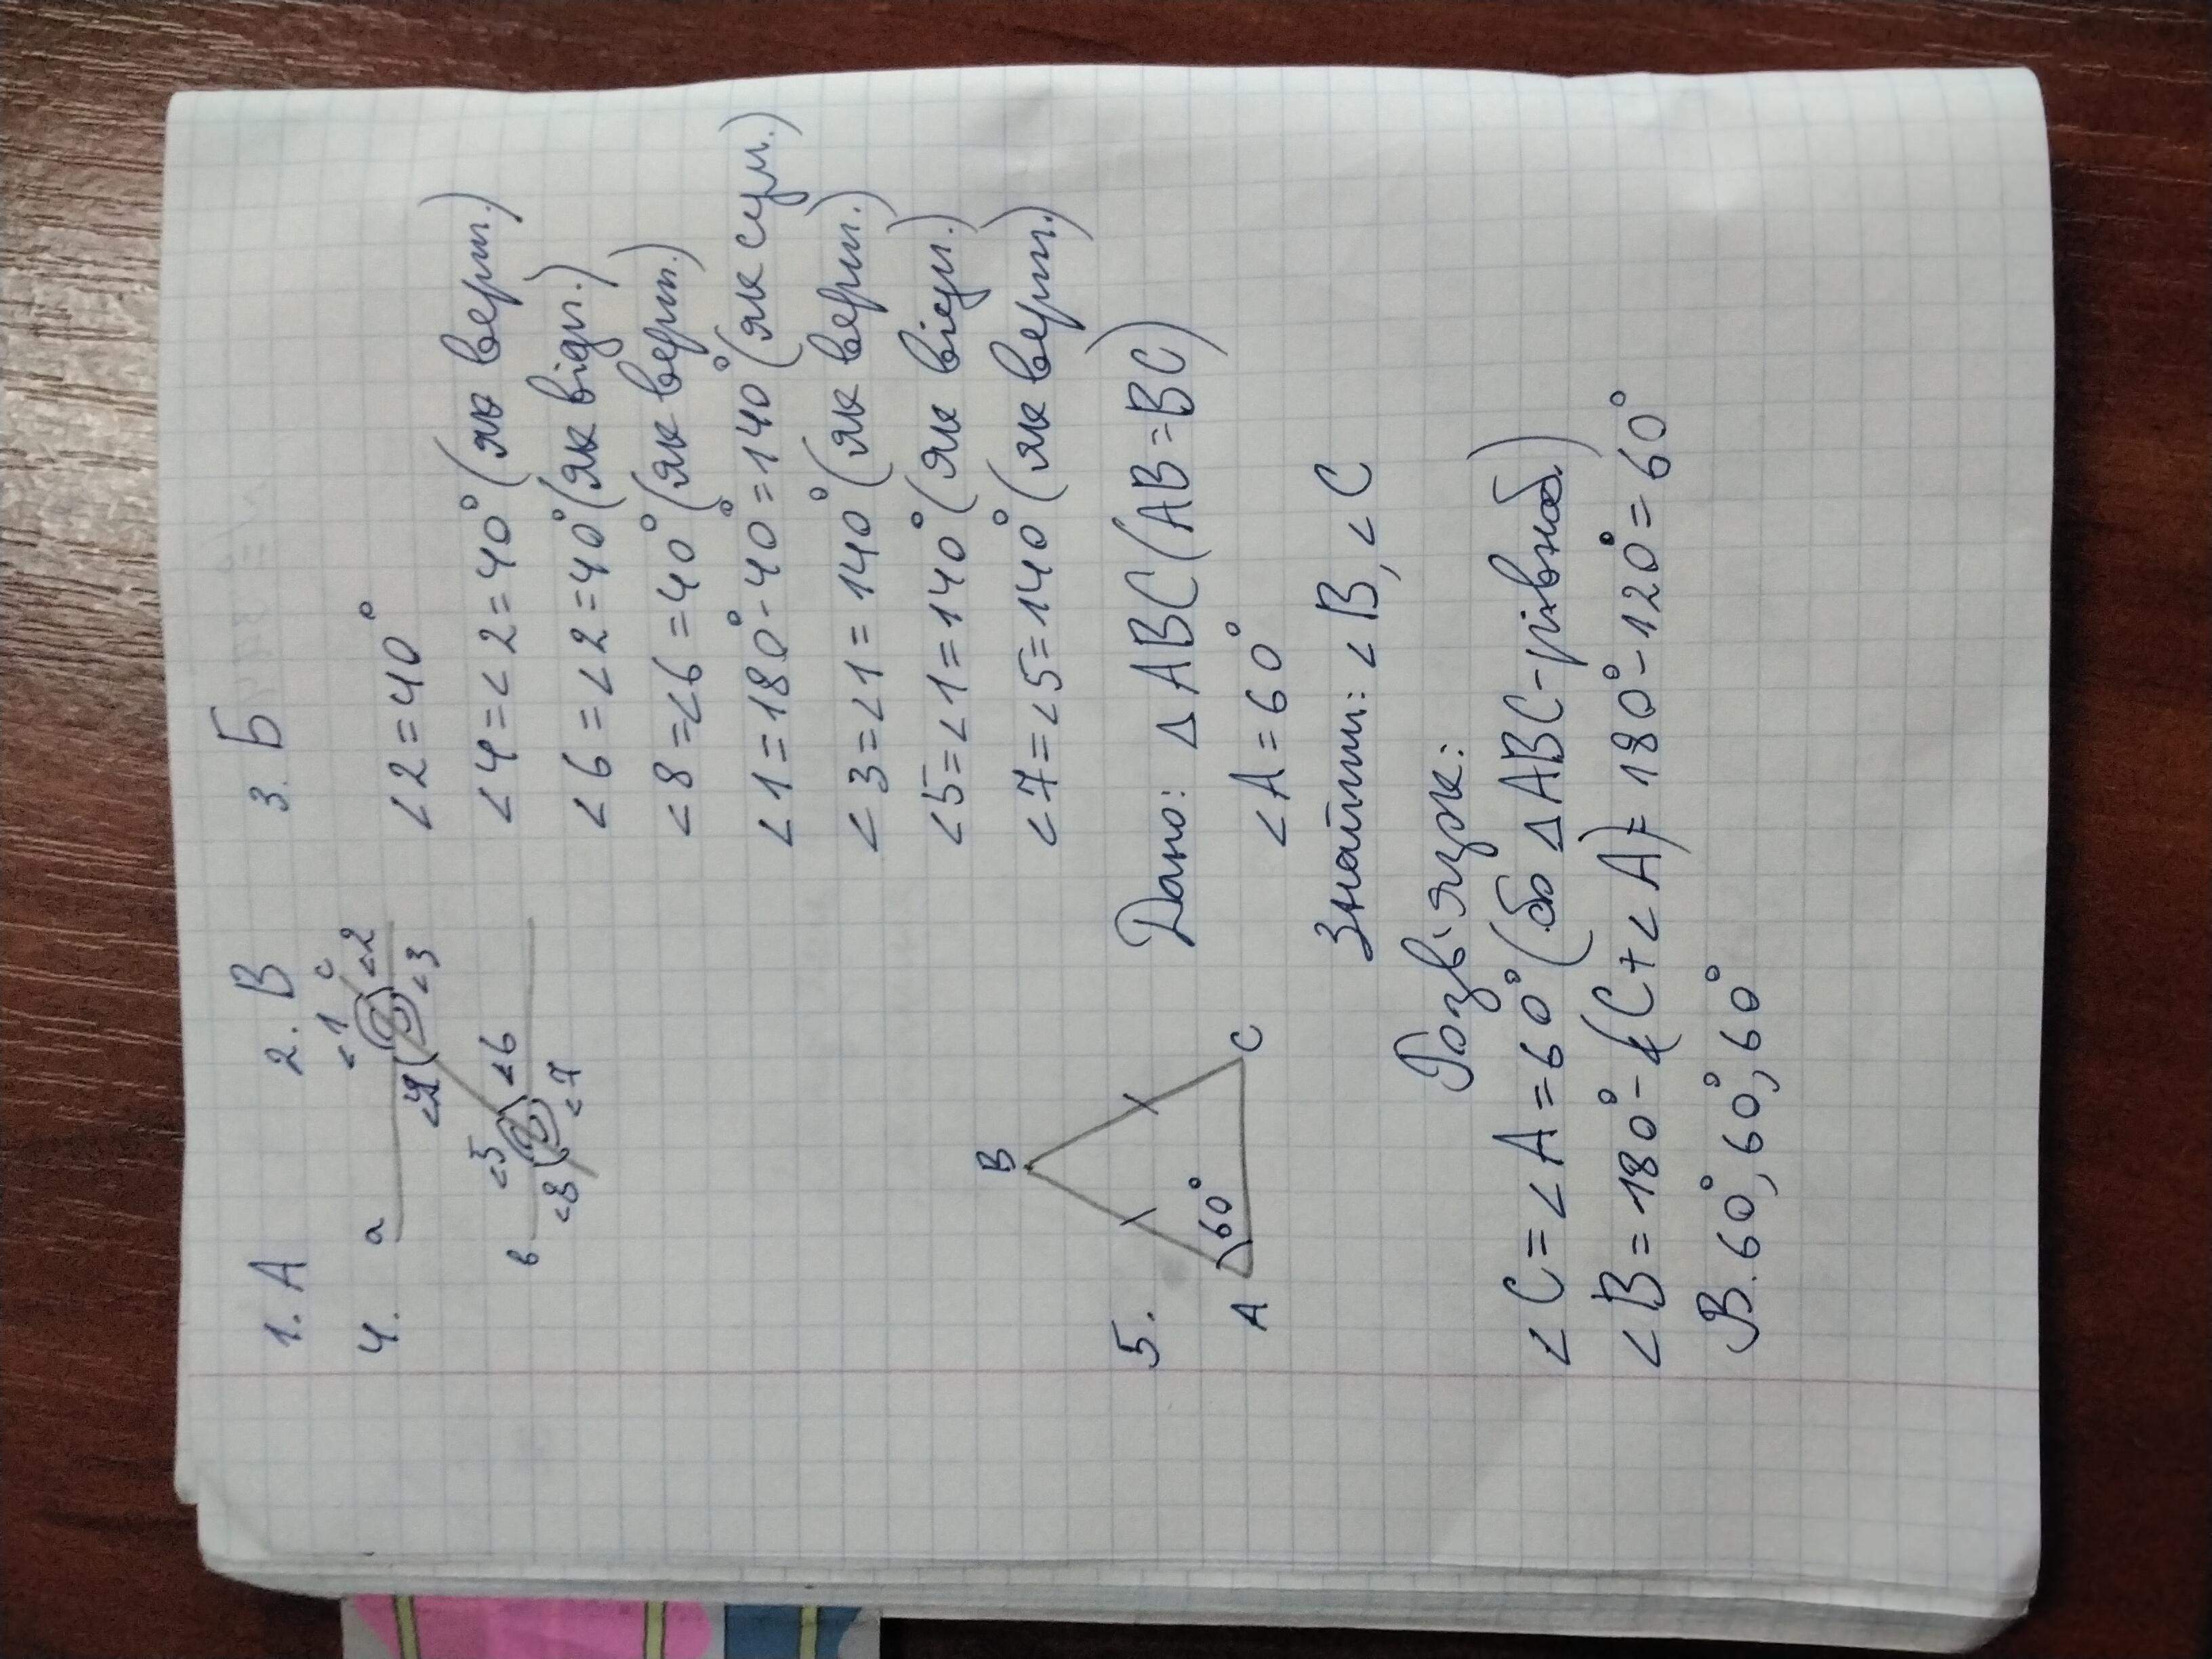 1. А 2. В 3. Б
4. a <1 c <2 <4 <3
<5 <6 b <8 <7
<2=40°
<4=<2=40° (як верт.)
<6=<2=40° (як відп.)
<8=<6=40° (як верт.)
<1=180°-40°=140° (як сум.)
<3=<1=140° (як верт.)
<5=<1=140° (як відп.)
<7=<5=140° (як верт.)
5. B A 60° C
Дано: Δ ABC (AB=BC)
<A=60°
Знайти: <B, <C
Розв'язок:
<C=<A=60° (бо Δ ABC-рівноб.)
<B=180°-(<C+<A)=180°-120°=60°
В. 60°, 60°, 60°